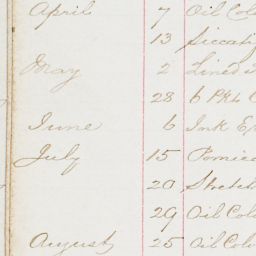 April 7 Oil Col
13 Siccati
May 2 Lined
28 6 Pkts
June 6 Ink E
July 15 Pomice
20 Stretch
29 Oil Colo
August 25 Oil Colo